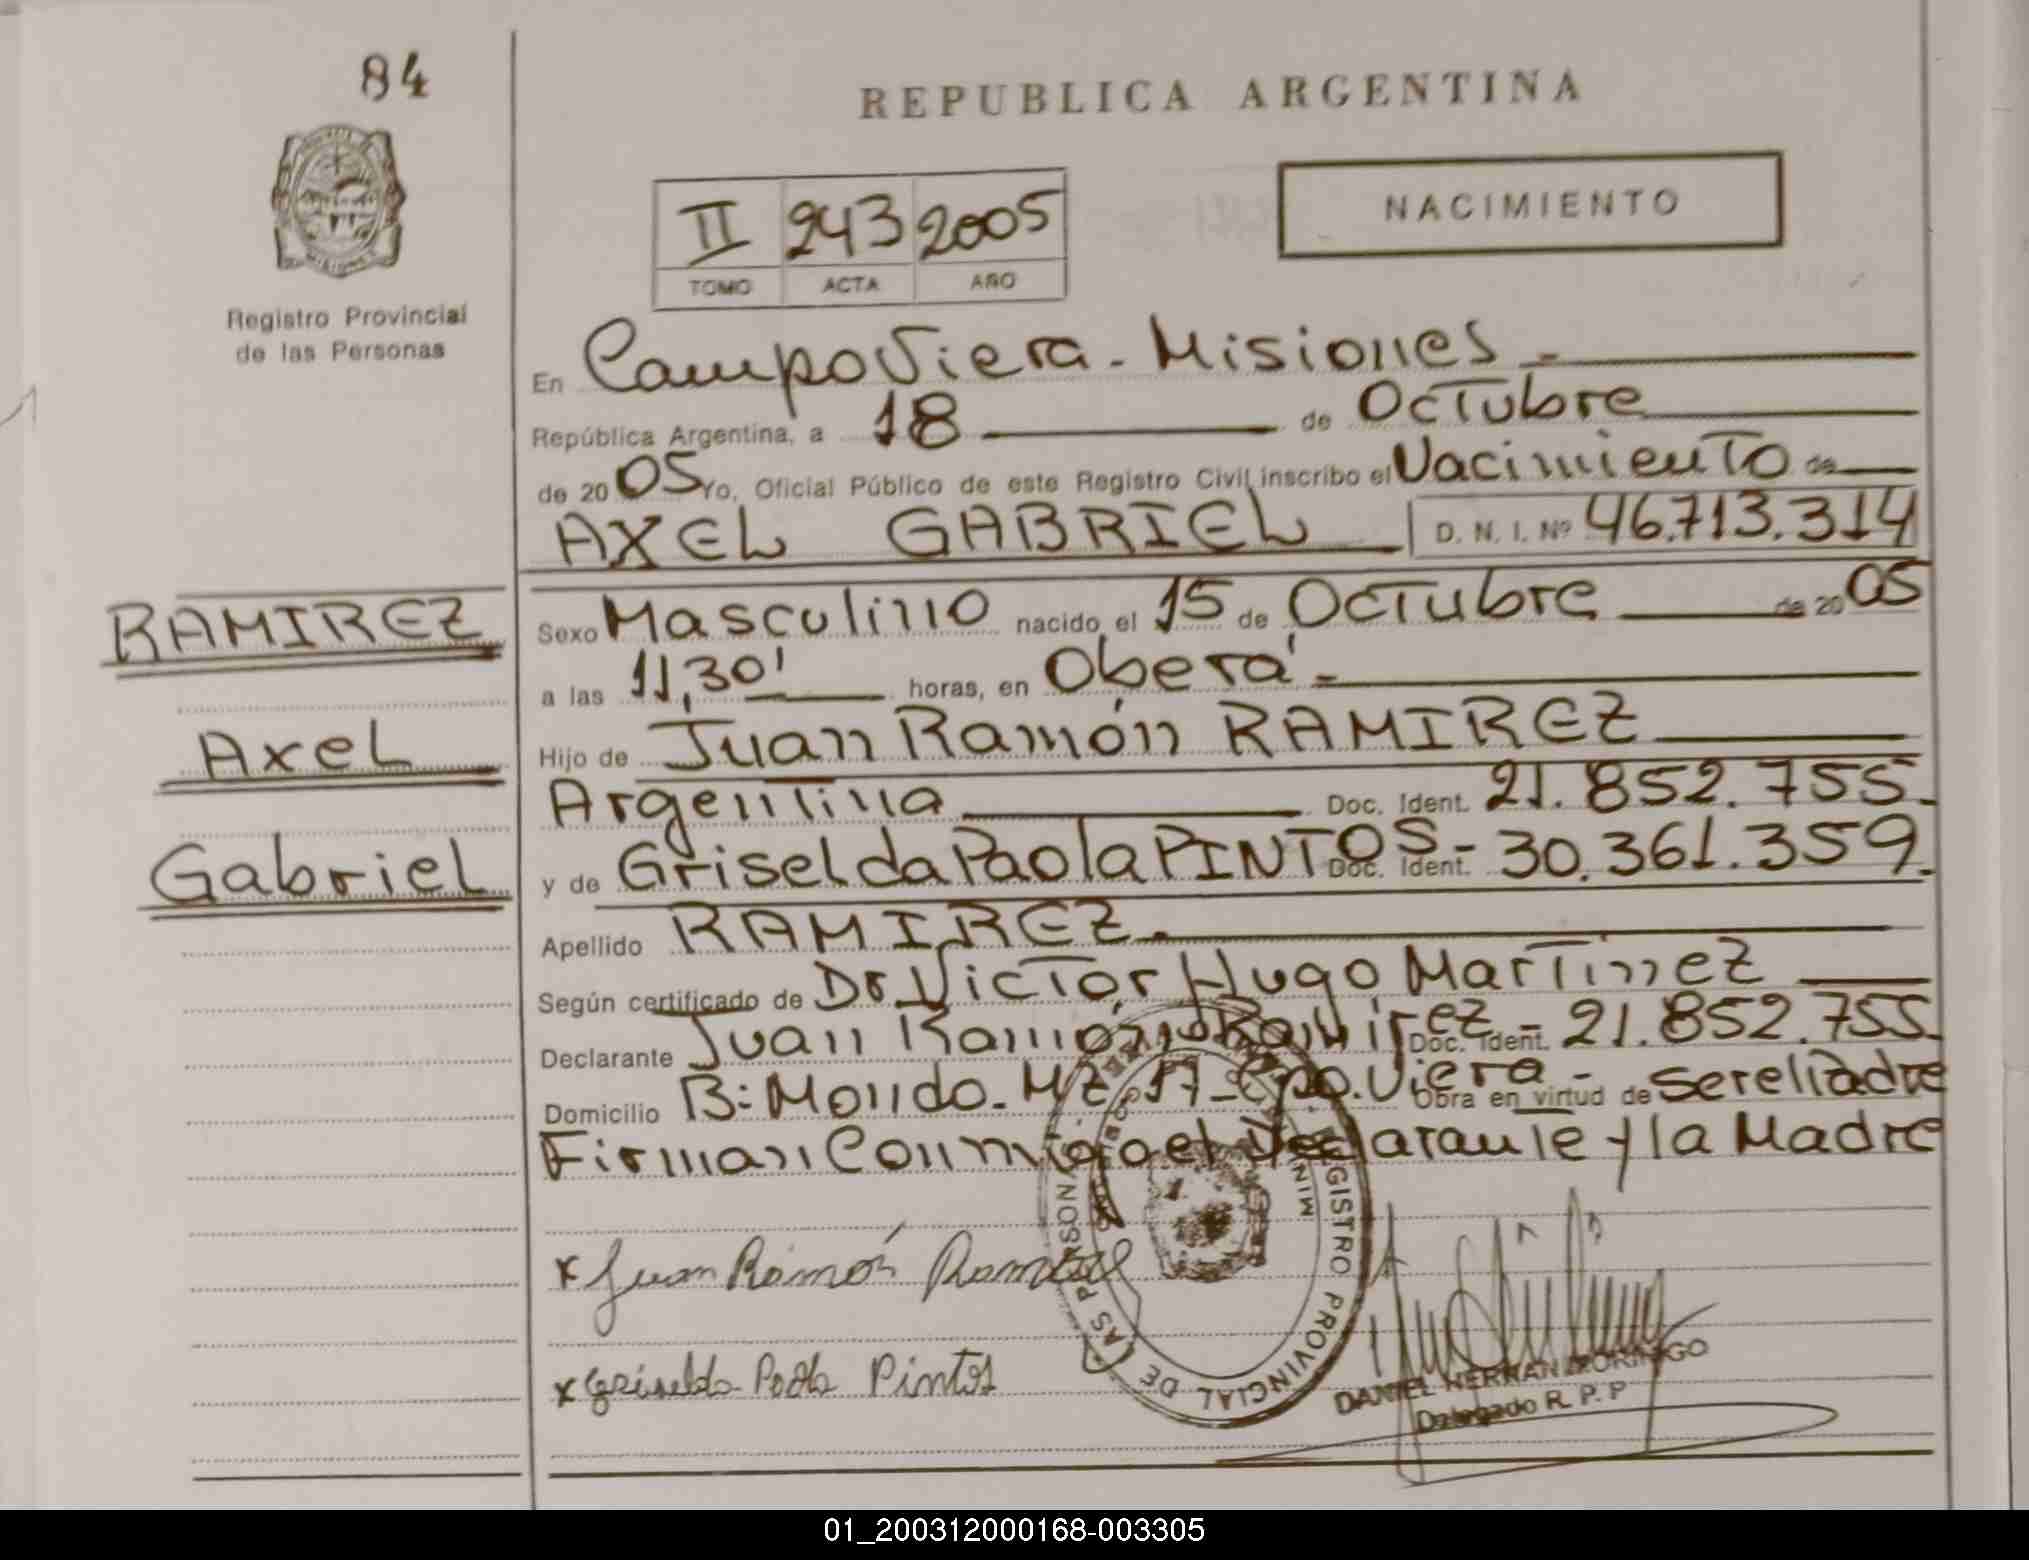 84
REPUBLICA ARGENTINA
NACIMIENTO
II 243 2005
TOMO ACTA AÑO
MISIONES
Registro Provincial
de las Personas
En Campo Viera - Misiones -
República Argentina, a 18 de Octubre
de 2005 Yo, Oficial Público de este Registro Civil inscribo el Nacimiento de
AXEL GABRIEL D. N. I. Nº 46.713.314
RAMIREZ
Axel
Gabriel
Sexo Masculino nacido el 15 de Octubre de 2005
a las 11,30' horas, en Oberá -
Hijo de Juan Ramón RAMIREZ
Argentina Doc. Ident. 21.852.755.
y de Griselda Paola PINTOS - Doc. Ident. 30.361.359.
Apellido RAMIREZ.
Según certificado de Dr. Victor Hugo Martinez
Declarante Juan Ramón Ramirez - Doc. Ident. 21.852.755.
Domicilio B: Mondo - Mz 17 - Cpo. Viera - Obra en virtud de ser el Padre
Firman Conmigo el Declarante y la Madre
x Juan Ramón Ramirez
x Griselda Paola Pintos
REGISTRO PROVINCIAL DE LAS PERSONAS
DANIEL HERNAN MORINIGO
Delegado R. P. P
01_200312000168-003305